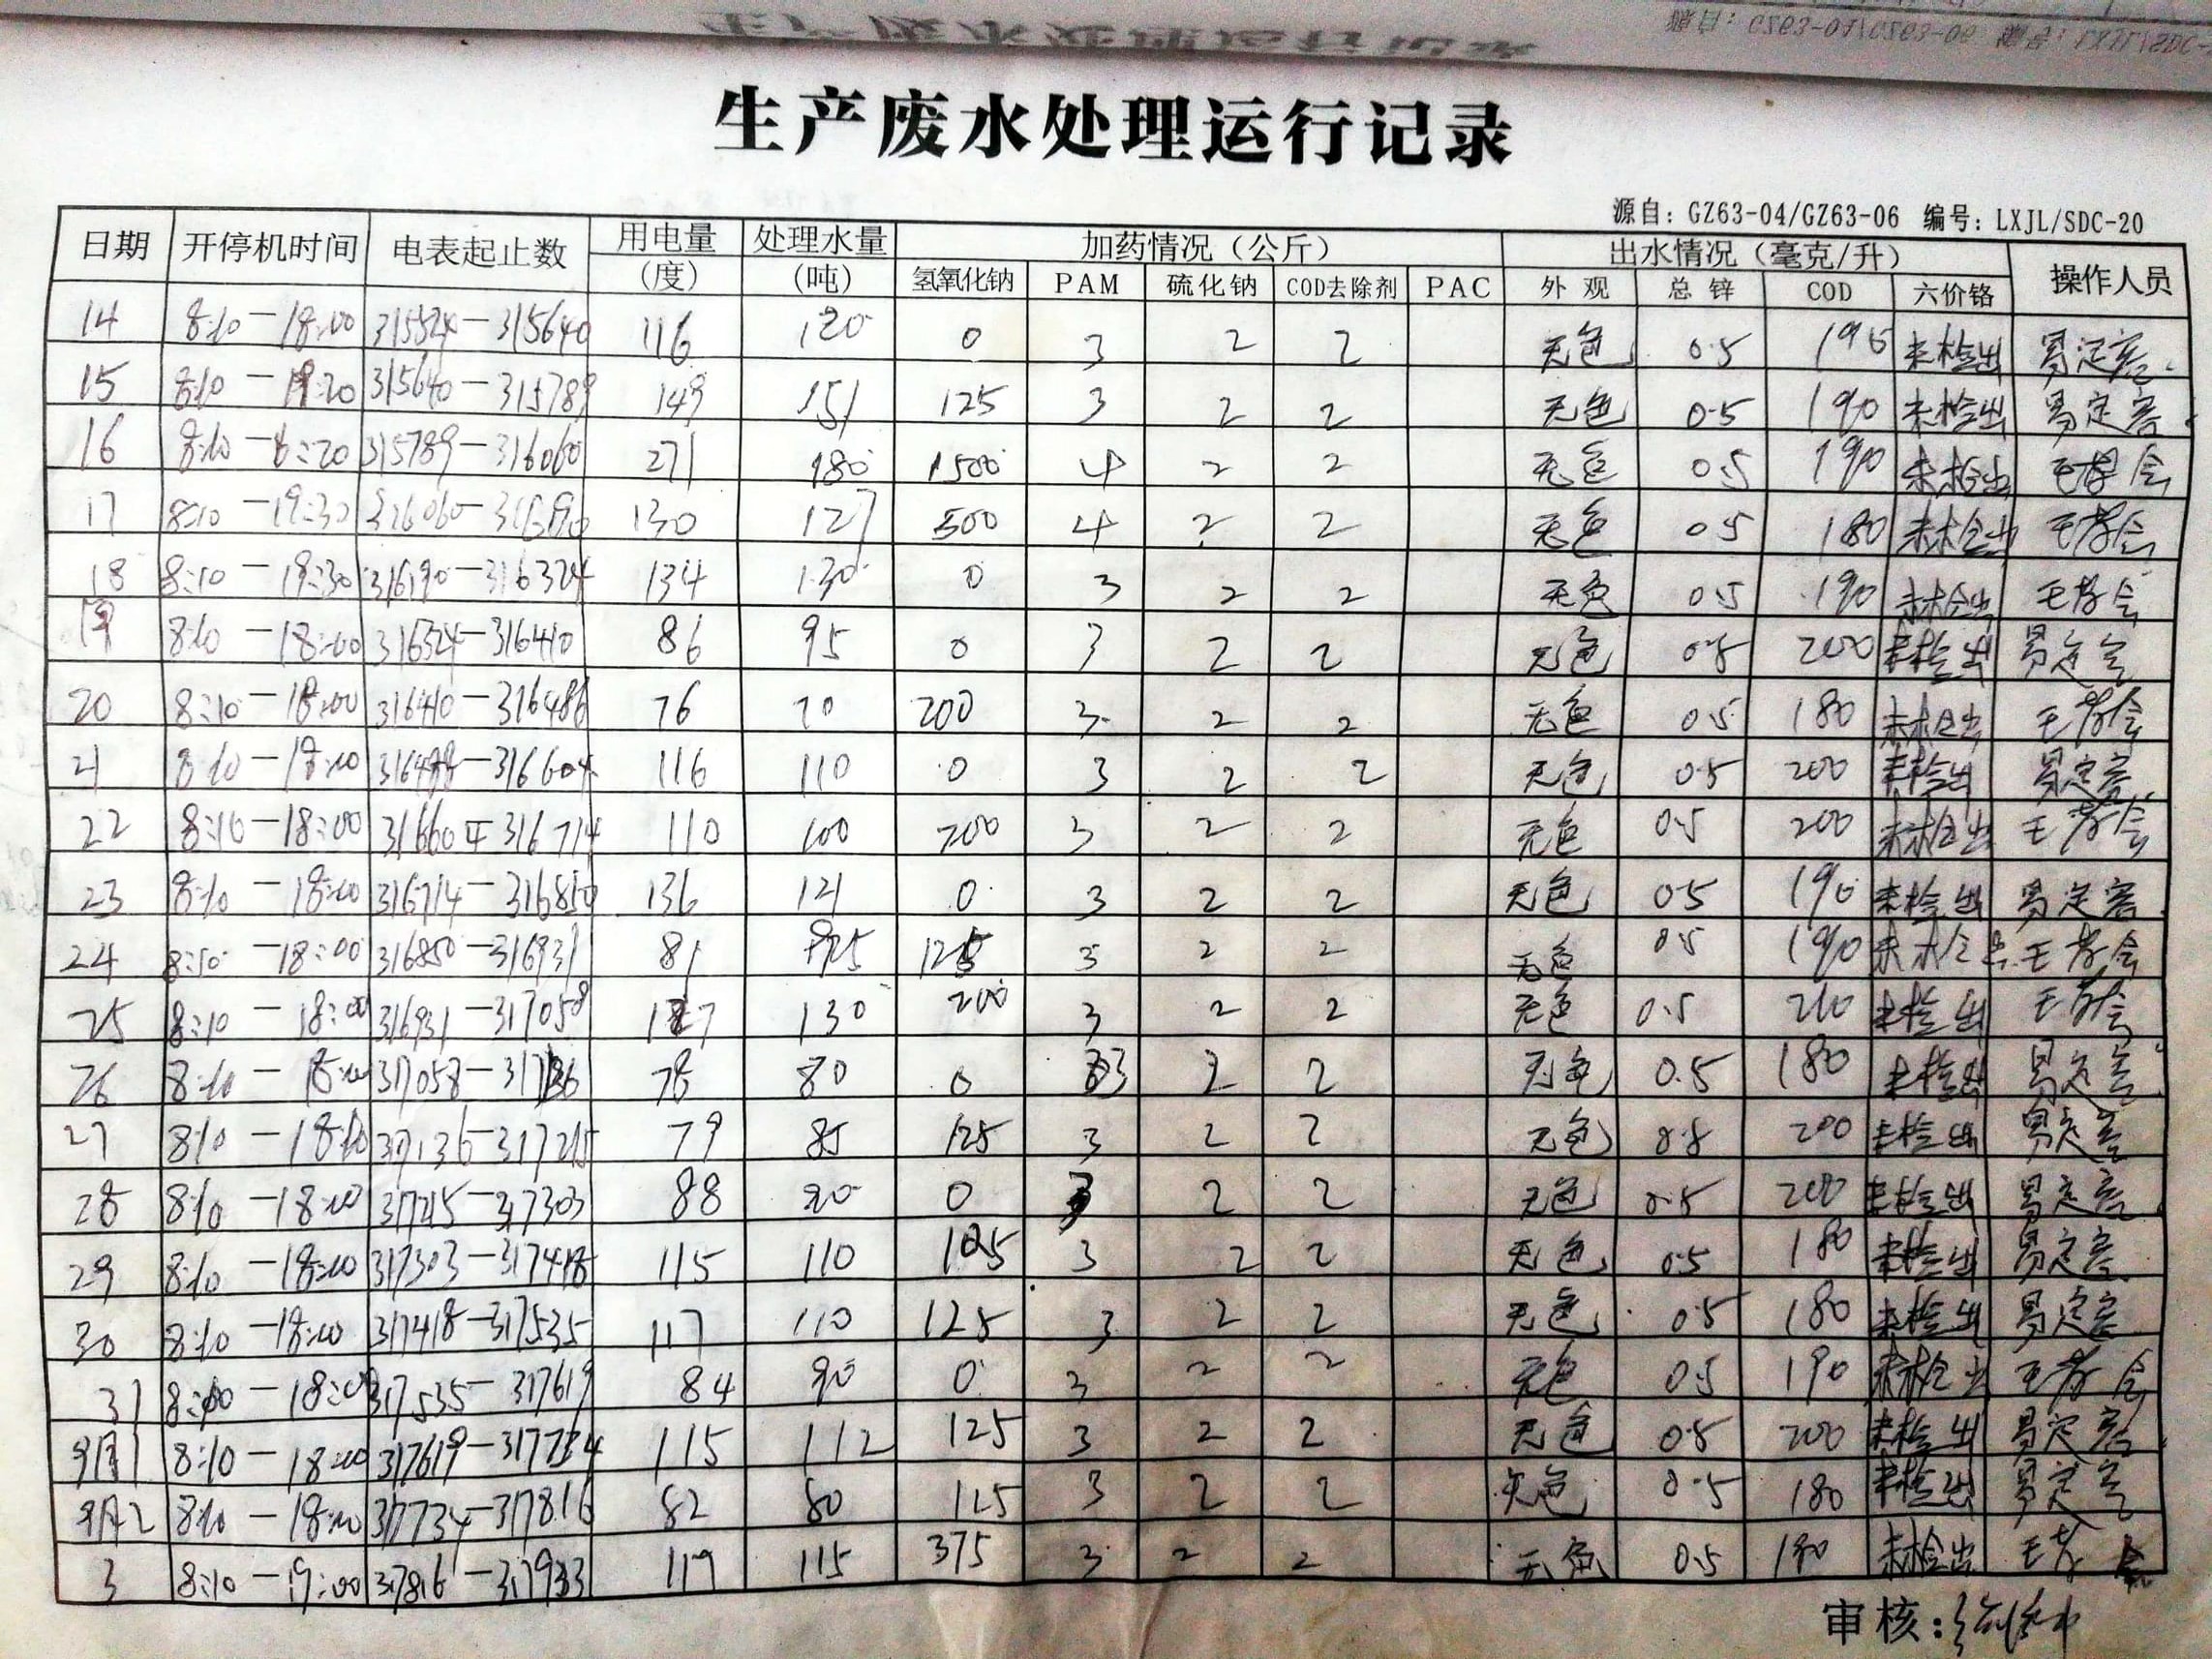 生产废水处理运行记录
源自：GZ63-04/GZ63-06 编号：LXJL/SDC-20
日期 开停机时间 电表起止数 用电量（度） 处理水量（吨） 加药情况（公斤） 出水情况（毫克/升） 操作人员
氢氧化钠 PAM 硫化钠 COD去除剂 PAC 外观 总锌 COD 六价铬
14 8:10-18:00 315524-315640 116 120 0 3 2 2 无色 0.5 195 未检出
15 8:10-19:20 315640-315789 149 151 125 3 2 2 无色 0.5 190 未检出
16 8:10-6:20 315789-316060 271 180 1500 4 2 2 无色 0.5 190 未检出
17 8:10-19:30 316060-316190 130 127 500 4 2 2 无色 0.5 180 未检出
18 8:10-19:30 316190-316324 134 130 0 3 2 2 无色 0.5 190 未检出
19 8:10-18:00 316324-316410 86 95 0 3 2 2 无色 0.5 200 未检出
20 8:10-18:00 316410-316486 76 70 200 3 2 2 无色 0.5 180 未检出
21 8:10-18:00 316488-316604 116 110 0 3 2 2 无色 0.5 200 未检出
22 8:10-18:00 316604-316714 110 100 200 3 2 2 无色 0.5 200 未检出
23 8:10-18:00 316714-316850 136 121 0 3 2 2 无色 0.5 190 未检出
24 8:10-18:00 316850-316931 81 125 3 2 2 无色 0.5 190 未检出
25 8:10-18:00 316931-317058 127 130 200 3 2 2 无色 0.5 210 未检出
26 8:10-18:00 317058-317136 78 80 0 3 2 2 无色 0.5 180 未检出
27 8:10-18:10 317136-317215 79 85 125 3 2 2 无色 0.5 200 未检出
28 8:10-18:00 317215-317303 88 90 0 3 2 2 无色 0.5 200 未检出
29 8:10-18:00 317303-317418 115 110 125 3 2 2 无色 0.5 180 未检出
30 8:10-18:00 317418-317535 117 110 125 3 2 2 无色 0.5 180 未检出
31 8:00-18:00 317535-317619 84 90 0 3 2 2 无色 0.5 190 未检出
9月1 8:10-18:00 317619-317734 115 112 125 3 2 2 无色 0.5 200 未检出
9月2 8:10-18:00 317734-317816 82 80 125 3 2 2 无色 0.5 180 未检出
3 8:10-19:00 317816-317933 117 115 375 3 2 2 无色 0.5 180 未检出
审核：